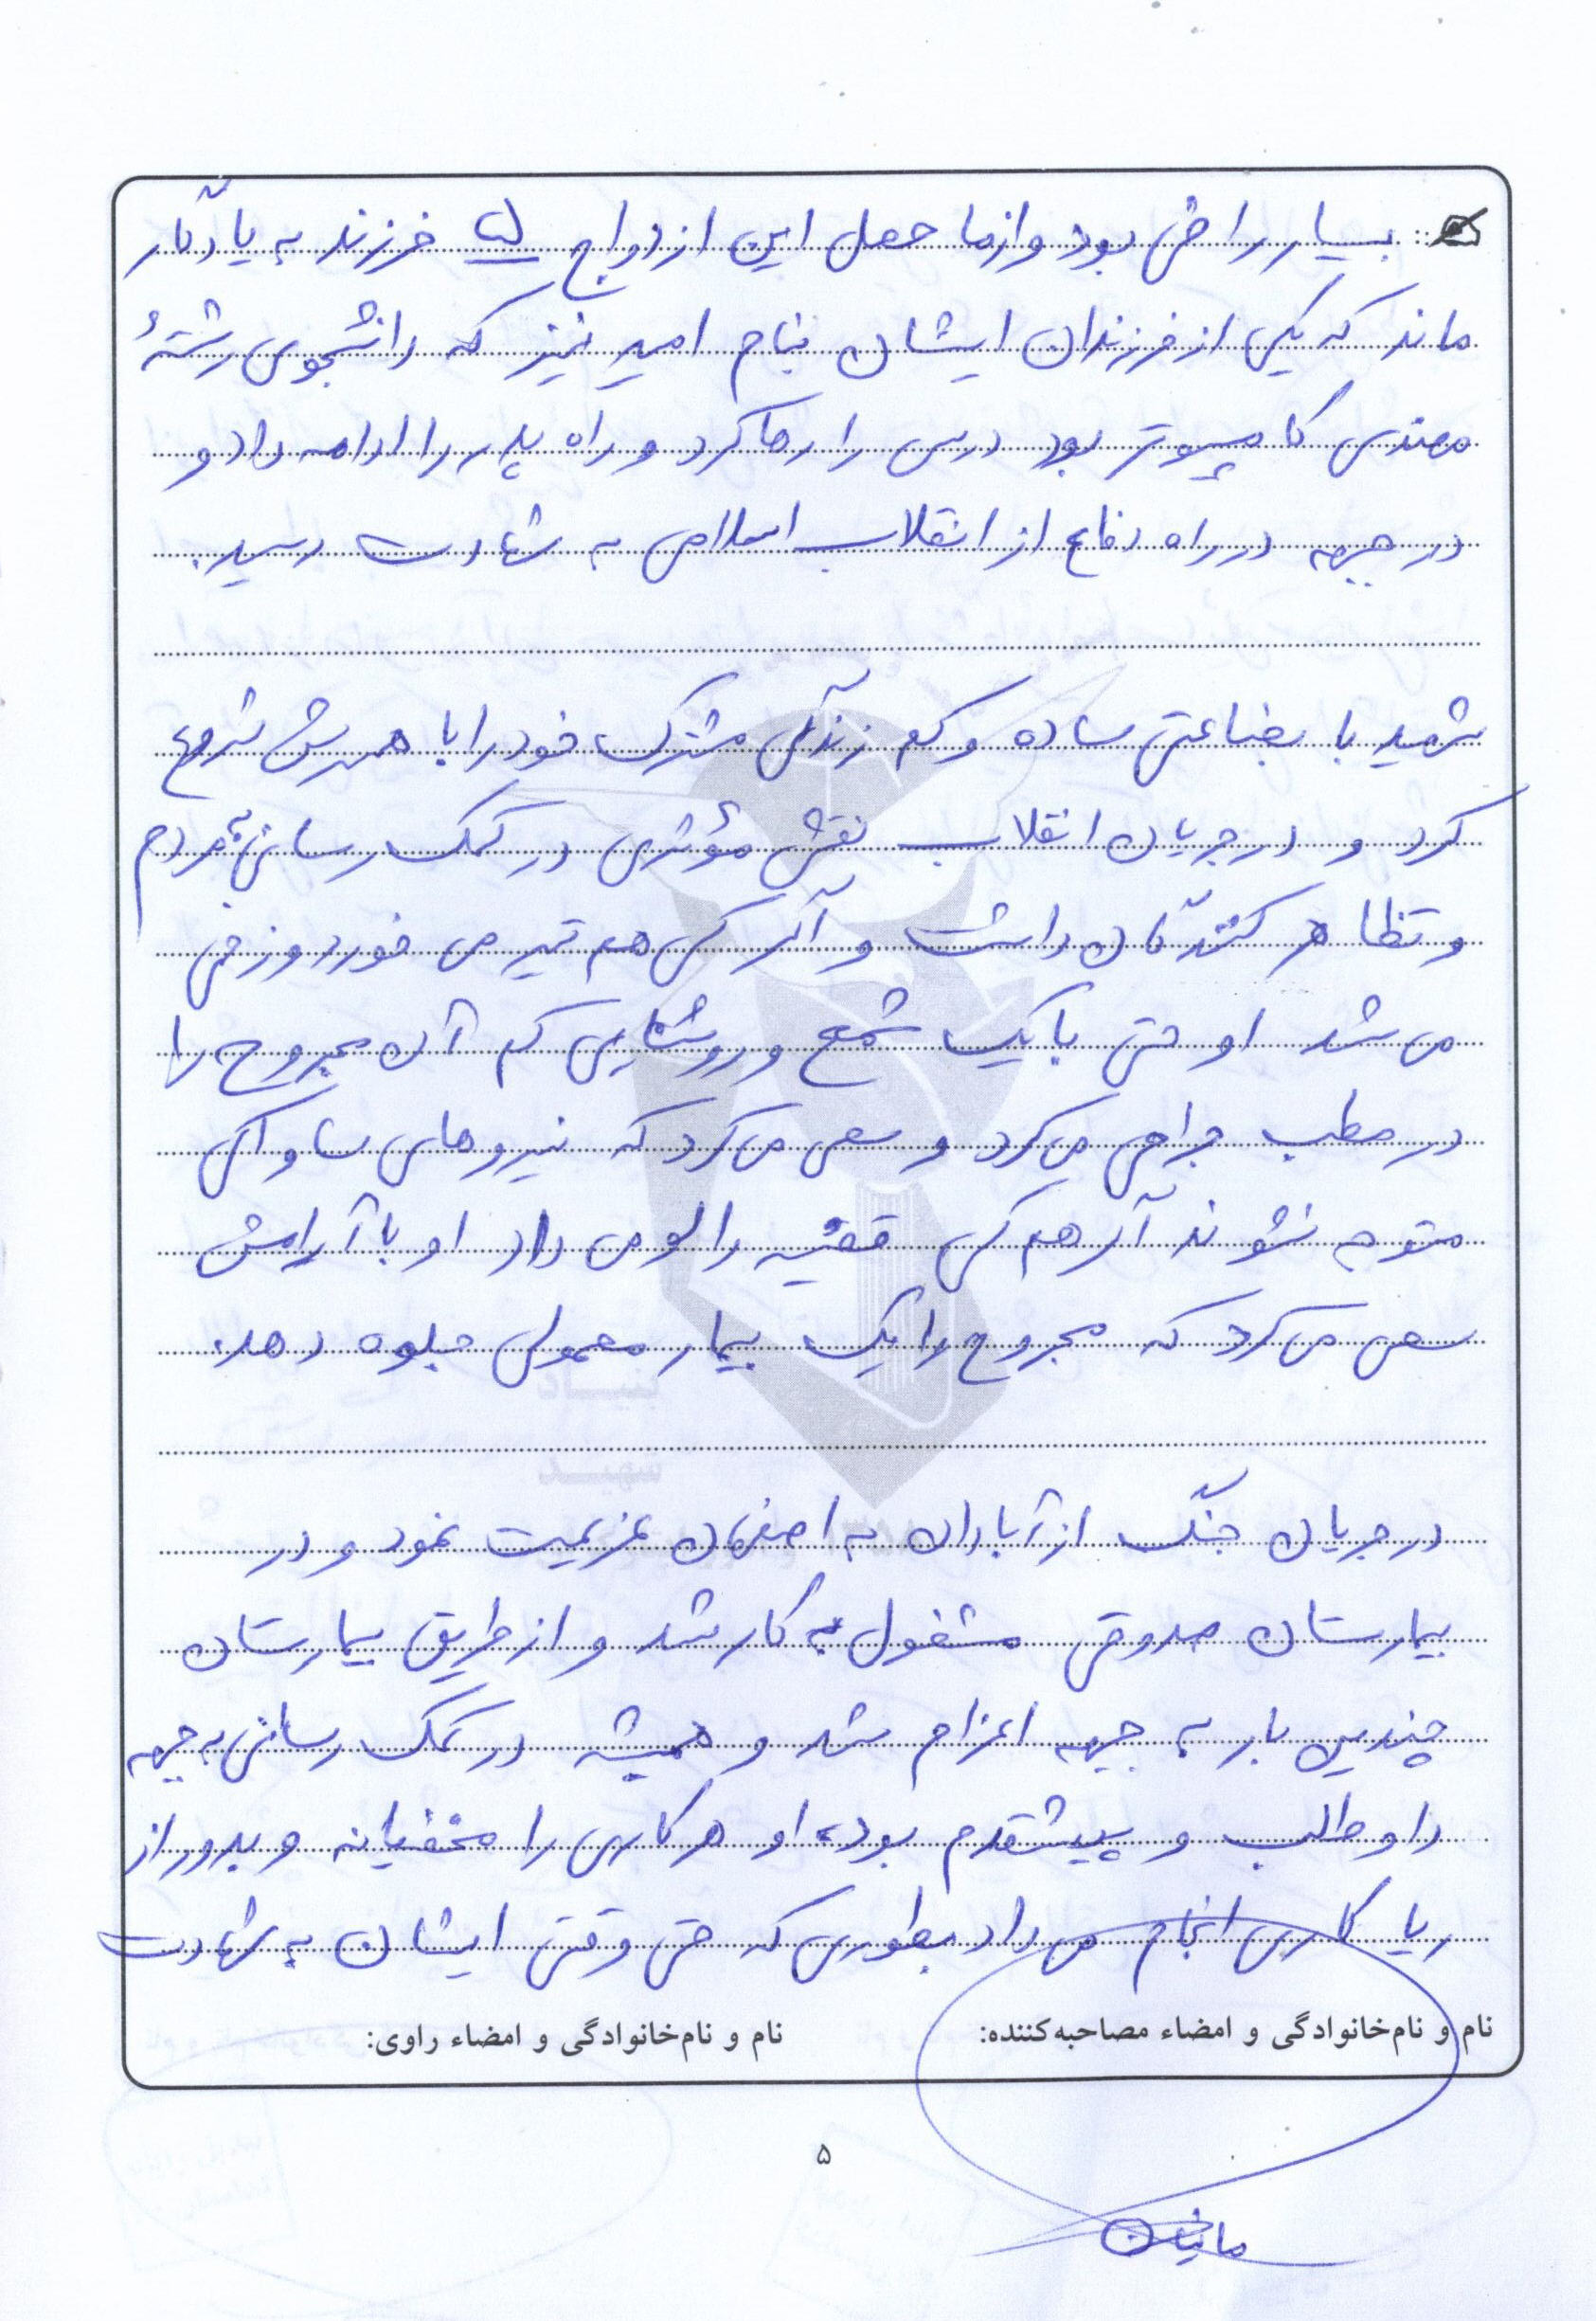 بسیار راضی بود و از ما حصل این ازدواج ۵ فرزند به یادگار
ماند که یکی از فرزندان ایشان بنام امیر نیز که دانشجوی رشتهٔ
مهندسی کامپیوتر بود درس را رها کرد و راه پدر را ادامه داد و
در جبهه در راه دفاع از انقلاب اسلامی به شهادت رسید.
شهید با بضاعتی ساده و کم زندگی مشترک خود را با همسرش شروع
کرد و در جریان انقلاب نقش مؤثری در کمک رسانی به مردم
و تظاهر کنندگان داشت و اگر کسی هم تیر می خورد و زخمی
می شد او حتی با یک شمع و روشنایی کم آن مجروح را
در مطب جراحی می کرد و سعی می کرد که نیروهای ساواکی
متوجه نشوند اگر هم کسی قضیه را لو می داد او با آرامش
سعی می کرد که مجروح را یک بیمار معمولی جلوه دهد.
در جریان جنگ از آبادان به اصفهان عزیمت نمود و در
بیمارستان صدوقی مشغول به کار شد و از طریق بیمارستان
چندین بار به جبهه اعزام شد و همیشه در کمک رسانی به جبهه
داوطلب و پیشقدم بود، او هر کاری را مخفیانه و بدور از
ریا کاری انجام می داد بطوری که حتی وقتی ایشان به شهادت
نام و نام‌خانوادگی و امضاء مصاحبه‌کننده:
نام و نام‌خانوادگی و امضاء راوی:
۵